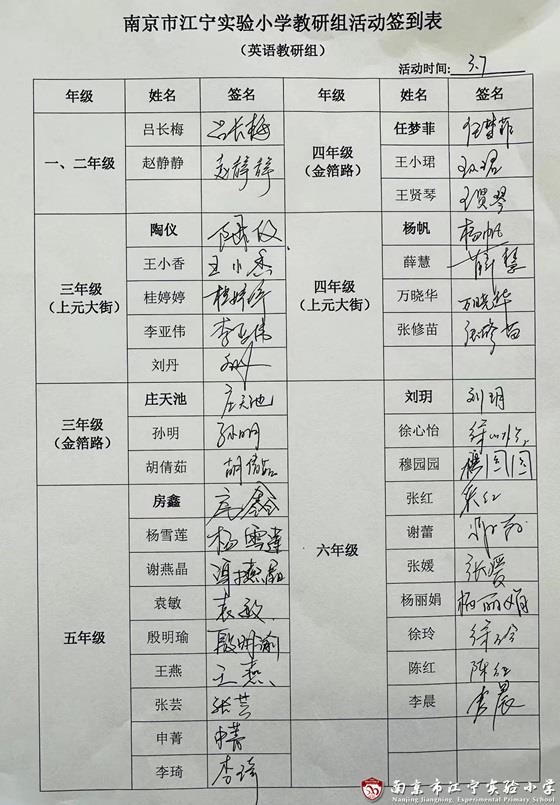 南京市江宁实验小学教研组活动签到表
（英语教研组）
活动时间：3.7
年级 姓名 签名 年级 姓名 签名
一、二年级
吕长梅 吕长梅
赵静静 赵静静
四年级
（金箔路）
任梦菲 任梦菲
王小珺 王小珺
王贤琴 王贤琴
三年级
（上元大街）
陶仪 陶仪
王小香 王小香
桂婷婷 桂婷婷
李亚伟 李亚伟
刘丹 刘丹
四年级
（上元大街）
杨帆 杨帆
薛慧 薛慧
万晓华 万晓华
张修苗 张修苗
三年级
（金箔路）
庄天池 庄天池
孙明 孙明
胡倩茹 胡倩茹
五年级
房鑫 房鑫
杨雪莲 杨雪莲
谢燕晶 谢燕晶
袁敏 袁敏
殷明瑜 殷明瑜
王燕 王燕
张芸 张芸
申菁 申菁
李琦 李琦
六年级
刘玥 刘玥
徐心怡 徐心怡
穆园园 穆园园
张红 张红
谢蕾 谢蕾
张媛 张媛
杨丽娟 杨丽娟
徐玲 徐玲
陈红 陈红
李晨 李晨
南京市江宁实验小学
Nanjing Jiangning Experimental Primary School